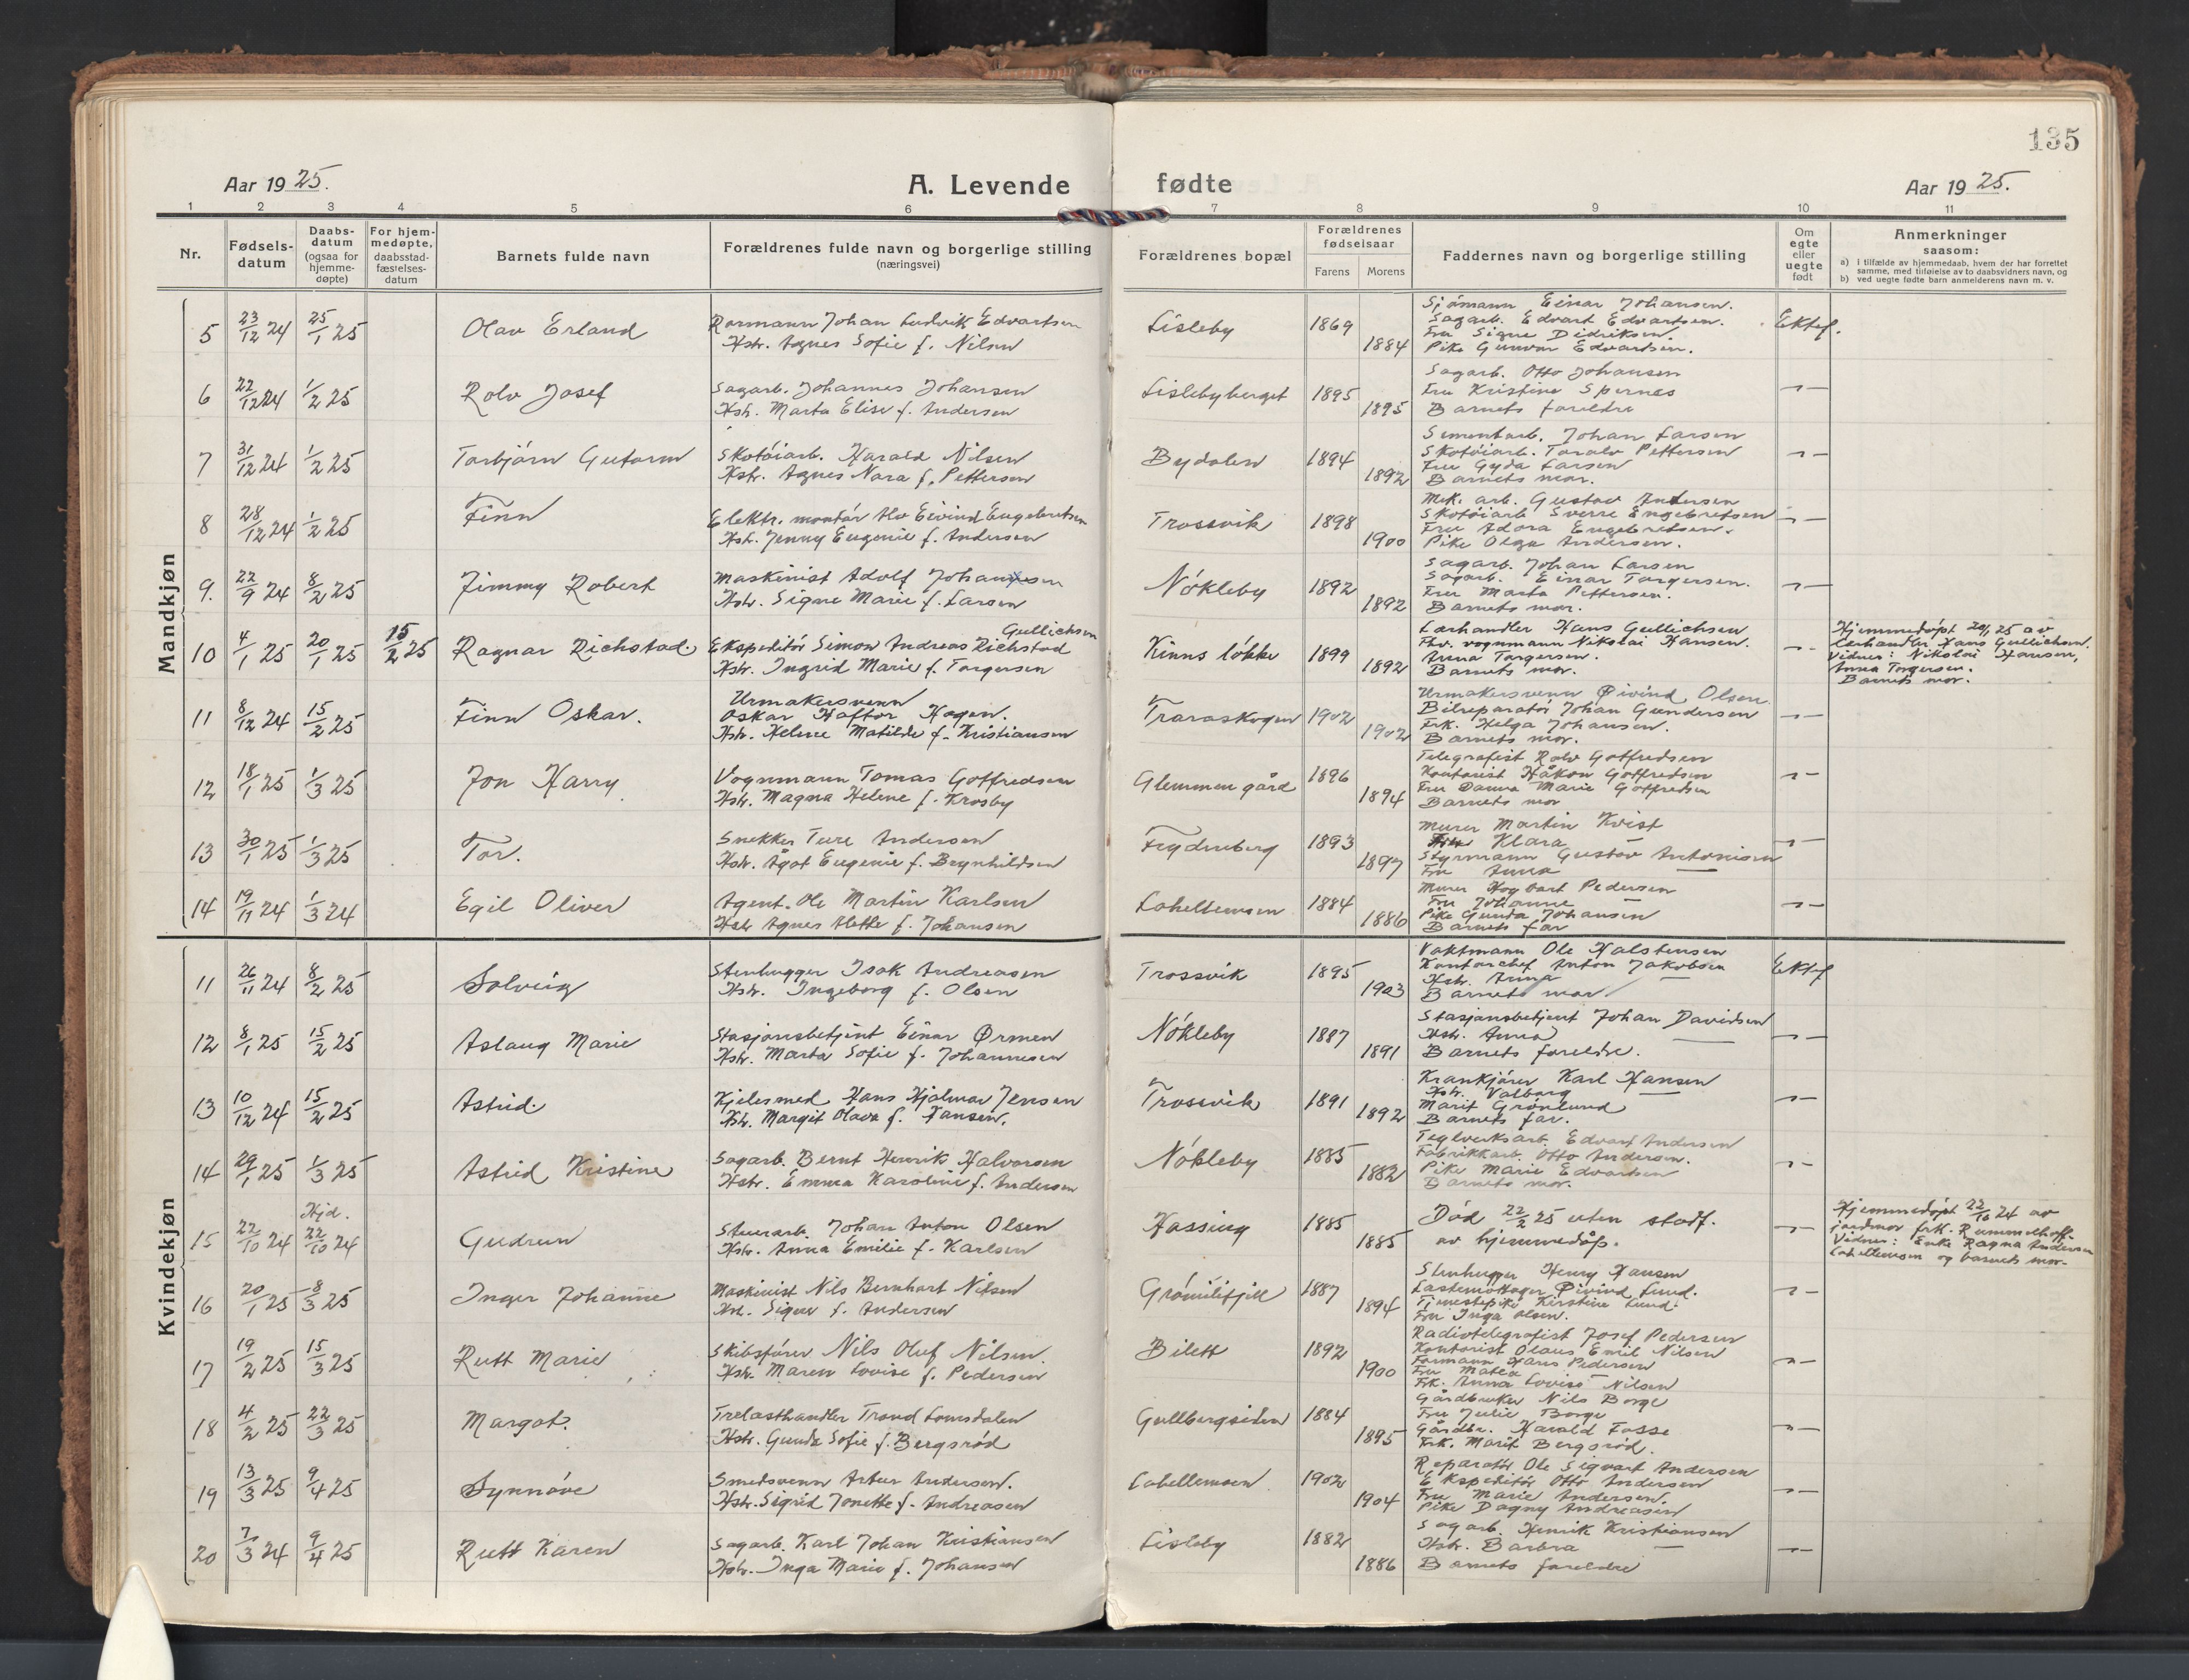 135
Aar 1925.
A. Levende fødte
Aar 1925.
1 2 3 4 5 6 7 8 9 10 11
Nr.
Fødsels-
datum
Daabs-
datum
(ogsaa for
hjemme-
døpte)
For hjem-
medøpte,
daabsstad-
fæstelses-
datum
Barnets fulde navn
Forældrenes fulde navn og borgerlige stilling
(næringsvei)
Forældrenes bopæl
Forældrenes
fødselsaar
Farens Morens
Faddernes navn og borgerlige stilling
Om
egte
eller
uegte
født
Anmerkninger
saasom:
a) i tilfælde av hjemmedaab, hvem der har forrettet
samme, med tilføielse av to daabsvidners navn, og
b) ved uegte fødte barn anmelderens navn m. v.
Mandkjøn
5 23/12 24 25/1 25 Olav Erland
Rormann Johan Ludvik Edvartsen
Hstr. Agnes Sofie f. Nilsen
Lisleby 1869 1884
Sjømann Einar Johansen.
Sagarb. Edvart Edvartsen.
Fru Signe Didriksen.
Pike Gunvor Edvartsen.
Ektef.
6 22/12 24 1/2 25 Rolv Josef
Sagarb. Johannes Johansen
Hstr. Marta Elise f. Andersen
Lislebyberget 1895 1895
Sagarb. Otto Johansen
Fru Kristine Spernes
Barnets foreldre
7 31/12 24 1/2 25 Torbjørn Gutorm
Skotøiarb. Harald Nilsen
Hstr. Agnes Nora f. Pettersen
Bydalen 1894 1892
Sementarb. Johan Larsen
Skotøiarb. Toralv Pettersen
Fru Gyda Larsen
Barnets mor.
8 28/12 24 1/2 25 Finn
Elektr. montør Alv Eivind Engebretsen
Hstr. Jenny Eugenie f. Andersen
Trossvik 1898 1900
Mek. arb. Gustav Andersen
Skotøiarb. Sverre Engebretsen
Fru Adora Engebretsen.
Pike Olga Andersen.
9. 22/9 24 8/2 25 Jimmy Robert
Maskinist Adolf Johansen
Hstr. Signe Marie f. Larsen
Nøkleby 1892 1892
Sagarb. Johan Larsen
Sagarb. Einar Torgersen.
Fru Marta Pettersen.
Barnets mor.
10 4/1 25 20/1 25 15/2 25 Ragnar Richstad
Gullichsen
Ekspeditør Simon Andreas Richstad
Hstr. Ingrid Marie f. Torgersen
Kinns løkke 1899 1892
Lærhandler Hans Gullichsen
Fhv. vognmann Nikolai Hansen.
Anna Torgersen.
Barnets mor.
Hjemmedøpt 20/1 25 av
Lærhandler Hans Gullichsen.
Vidner: Nikolai Hansen,
Anna Torgersen.
Barnets mor.
11 8/12 24 15/2 25 Finn Oskar.
Urmakersvenn
Oskar Haftor Hagen.
Hstr. Helene Matilde f. Kristiansen
Traraskogen 1902 1902
Urmakersvenn Øivind Olsen
Bilreparatør Johan Gundersen
Frk. Helga Johansen.
Barnets mor.
12 18/1 25 1/3 25 Jon Harry
Vognmann Tomas Gotfredsen
Hstr. Magna Helene f. Krosby
Glemmen gård 1896 1894
Telegrafist Rolv Gotfredsen
Kontorist Håkon Gotfredsen
Fru Marie Gotfredsen
Barnets mor
13 30/1 25 1/3 25 Tor.
Snekker Ture Andersen
Hstr. Ågot Eugenie f. Brynhildsen
Frydenberg 1893 1897
Murer Martin Kvist
Fru Klara
Styrmann Gustav Antonisen
Fru Anna —
14 19/11 24 1/3 24 Egil Oliver
Agent. Ole Martin Karlsen
Hstr Agnes Alette f. Johansen
Labellemoen 1884 1886
Murer Hagbart Pedersen
Fru Johanne —
Pike Gunda Johansen
Barnets far
Kvindekjøn
11 26/11 24 8/2 25 Solveig
Stenhugger Isak Andreasen
Hstr. Ingeborg f. Olsen
Trossvik 1895 1903
Vaktmann Ole Halstensen
Kontorchef Anton Jakobsen
Hstr. Anna —
Barnets mor
Ektef
12 8/1 25 15/2 25 Aslaug Marie
Stasjonsbetjent Einar Ørmen
Hstr. Marta Sofie f. Johannesen
Nøkleby 1887 1891
Stasjonsbetjent Johan Davidsen
Hstr. Anna —
Barnets foreldre.
13 10/12 24 15/2 25 Astrid.
Kjelesmed Hans Hjalmar Jensen
Hstr. Margit Olava f. Hansen.
Trossvik 1891 1892
Krankjører Karl Hansen
Hstr. Valborg —
Marit Grønlund
Barnets far.
14 29/1 25 1/3 25 Astrid Kristine
Sagarb. Bernt Henrik Halvorsen
Hstr. Emma Karoline f. Andersen
Nøkleby 1885 1882
Teglverksarb. Edvart Andersen
Fabrikkarb. Otto Andersen.
Pike Marie Edvartsen
Barnets mor.
15 22/10 24 Hjd. 22/10 24 Gudrun
Stenarb. Johan Anton Olsen
Hstr. Anna Emilie f. Karlsen
Hassing 1885 1885
Død 22/2 25 uten stadf.
av hjemmedåp.
Hjemmedøpt 22/10 24 av
jordmor frk. Rummelhoff.
Vidner: Enke Ragna Andersen
Labellemoen og barnets mor.
16 20/1 25 8/3 25 Inger Johanne
Maskinist Nils Bernhart Nilsen
Hstr. Signe f. Andersen
Grømlifjell 1887 1894
Stenhugger Henry Hansen
Lastemottager Øivind Lund.
Tjenestepike Kirstine Lund.
Fru Inga Olsen.
17 19/2 25 15/3 25 Rutt Marie
Skibsfører Nils Oluf Nilsen.
Hstr. Maren Lovise f. Pedersen
Bilett 1892 1900
Radiotelegrafist Josef Pedersen
Kontorist Olaus Emil Nilsen
Formann Hans Pedersen
Fru Matea —
Frk. Anna Lovise Nilsen
18 4/2 25 22/3 25 Margot.
Trelasthandler Trond Lomsdalen
Hstr. Gunda Sofie f. Bergsrød
Gullbergsiden 1884 1895
Gårdbruker Nils Borge
Fru Julie Borge
Gårdbr. Harald Fosse
Frk. Marit Bergsrød.
19 13/3 25 9/4 25 Synnøve
Smedsvenn Artur Andersen.
Hstr. Sigrid Jonette f. Andreasen
Labellemoen 1902 1904
Reparatør Ole Sigvart Andersen
Ekspeditør Otto Andersen
Fru Marie Andersen.
Pike Dagny Andreasen
20 7/3 24 9/4 25 Rutt Karen
Sagarb. Karl Johan Kristiansen
Hstr. Inga Marie f. Johansen
Lisleby 1882 1886
Sagarb. Henrik Kristiansen
Hstr. Barbra —
Barnets foreldre